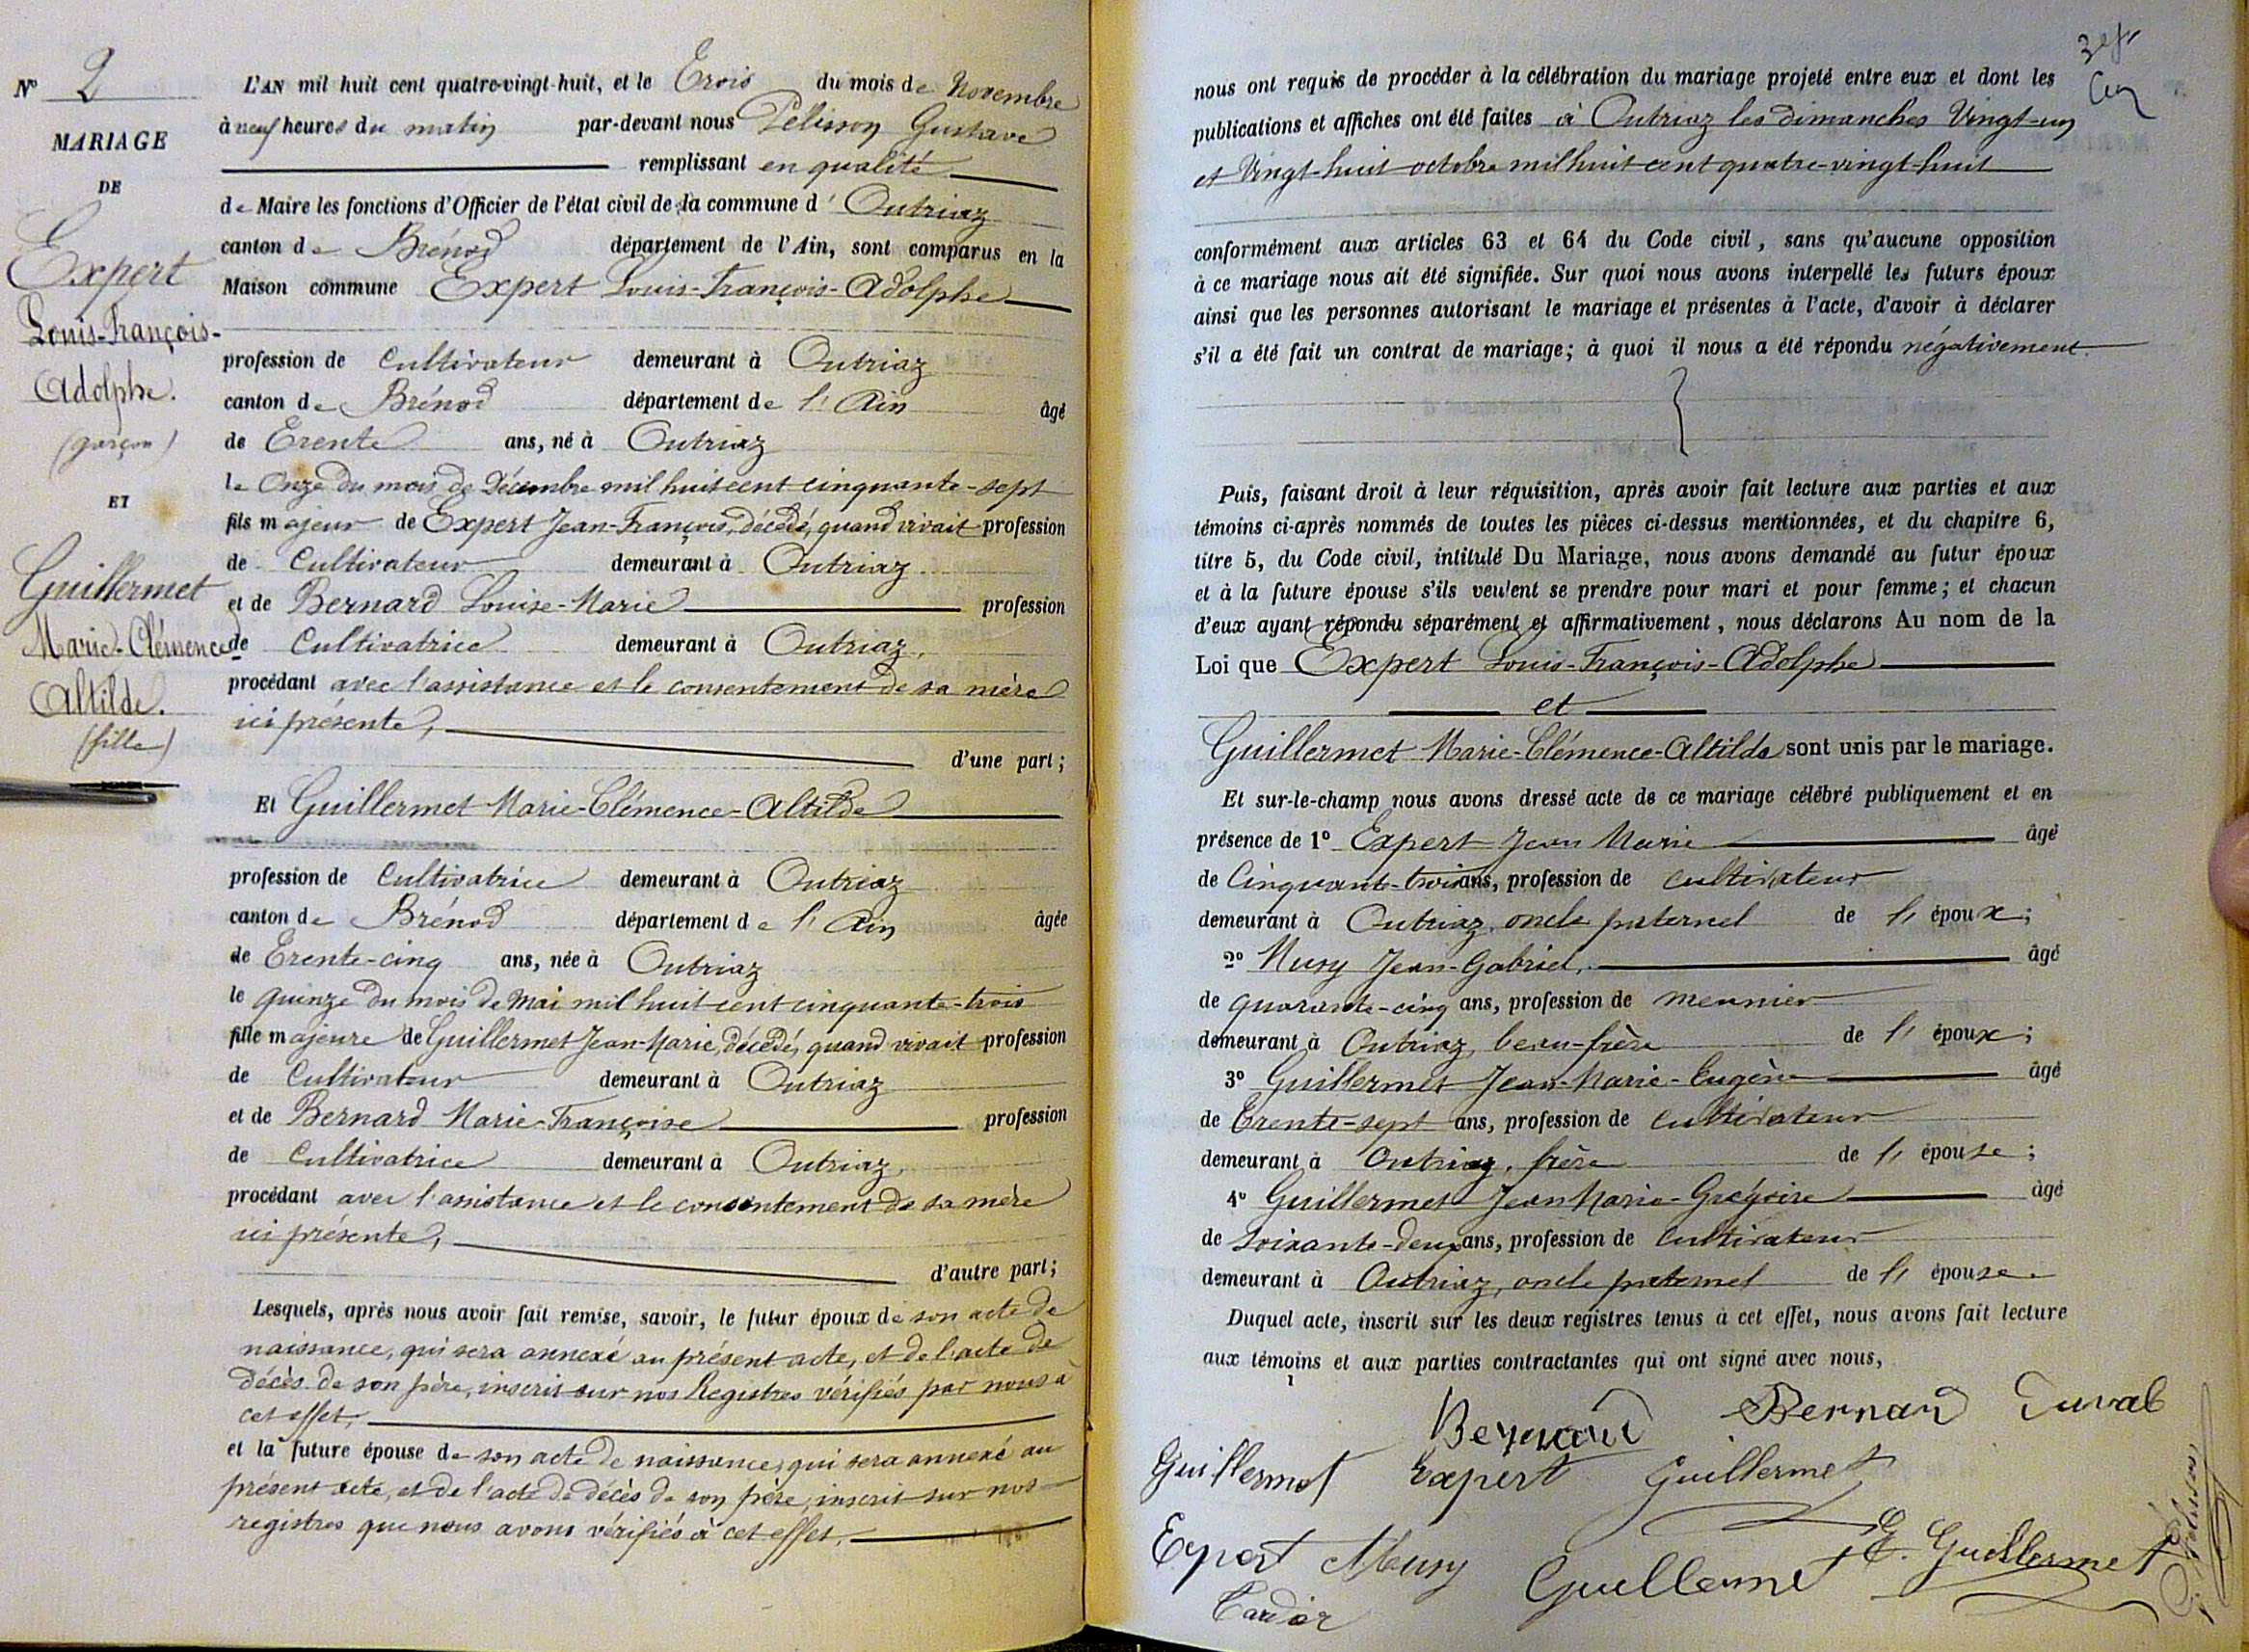 N° 2
MARIAGE
DE
Expert
Louis-François-
Adolphe.
(garçon)
ET
Guillermet
Marie-Clémence
Altilde.
(fille)
L'AN mil huit cent quatre-vingt-huit, et le Trois du mois de Novembre
à neuf heures du matin par-devant nous Pélisson Gustave
remplissant en qualité
de Maire les fonctions d'Officier de l'état civil de la commune d' Outriaz
canton de Brénod département de l'Ain, sont comparus en la
Maison commune Expert Louis-François-Adolphe
profession de Cultivateur demeurant à Outriaz
canton de Brénod département de l'Ain âgé
de Trente ans, né à Outriaz
le Onze du mois de Décembre mil huit cent cinquante-sept
fils majeur de Expert Jean-François, décédé, quand vivait profession
de Cultivateur demeurant à Outriaz
et de Bernard Louise-Marie profession
de Cultivatrice demeurant à Outriaz,
procédant avec l'assistance et le consentement de sa mère
ici présente,
d'une part;
Et Guillermet Marie-Clémence-Altilde
profession de Cultivatrice demeurant à Outriaz
canton de Brénod département de l'Ain âgée
de Trente-cinq ans, née à Outriaz
le quinze du mois de Mai mil huit cent cinquante-trois
fille majeure de Guillermet Jean-Marie, décédé, quand vivait profession
de Cultivateur demeurant à Outriaz
et de Bernard Marie-Françoise profession
de Cultivatrice demeurant à Outriaz,
procédant avec l'assistance et le consentement de sa mère
ici présente,
d'autre part;
Lesquels, après nous avoir fait remise, savoir, le futur époux de son acte de
naissance, qui sera annexé au présent acte, et de l'acte de
décès de son père, inscrit sur nos Registres vérifiés par nous à
cet effet,
et la future épouse de son acte de naissance, qui sera annexé au
présent acte, et de l'acte de décès de son père, inscrit sur nos
registres que nous avons vérifiés à cet effet,
nous ont requis de procéder à la célébration du mariage projeté entre eux et dont les
publications et affiches ont été faites à Outriaz les dimanches Vingt-un
et Vingt-huit octobre mil huit cent quatre-vingt-huit
conformément aux articles 63 et 64 du Code civil, sans qu'aucune opposition
à ce mariage nous ait été signifiée. Sur quoi nous avons interpellé les futurs époux
ainsi que les personnes autorisant le mariage et présentes à l'acte, d'avoir à déclarer
s'il a été fait un contrat de mariage; à quoi il nous a été répondu négativement.
Puis, faisant droit à leur réquisition, après avoir fait lecture aux parties et aux
témoins ci-après nommés de toutes les pièces ci-dessus mentionnées, et du chapitre 6,
titre 5, du Code civil, intitulé Du Mariage, nous avons demandé au futur époux
et à la future épouse s'ils veulent se prendre pour mari et pour femme; et chacun
d'eux ayant répondu séparément et affirmativement, nous déclarons Au nom de la
Loi que Expert Louis-François-Adolphe
et
Guillermet Marie-Clémence-Altilde sont unis par le mariage.
Et sur-le-champ nous avons dressé acte de ce mariage célébré publiquement et en
présence de 1° Expert Jean Marie âgé
de Cinquante-trois ans, profession de cultivateur
demeurant à Outriaz, oncle paternel de l'époux;
2° Musy Jean-Gabriel, âgé
de quarante-cinq ans, profession de meunier
demeurant à Outriaz, beau-frère de l'époux;
3° Guillermet Jean-Marie-Eugène âgé
de Trente-sept ans, profession de cultivateur
demeurant à Outriaz, frère de l'épouse;
4° Guillermet Jean Marie-Grégoire âgé
de Soixante-deux ans, profession de cultivateur
demeurant à Outriaz, oncle paternel de l'épouse
Duquel acte, inscrit sur les deux registres tenus à cet effet, nous avons fait lecture
aux témoins et aux parties contractantes qui ont signé avec nous,
Bernard Bernard Duval
Guillermet Expert Guillermet
Expert Musy Guillermet E. Guillermet
G. Pélisson